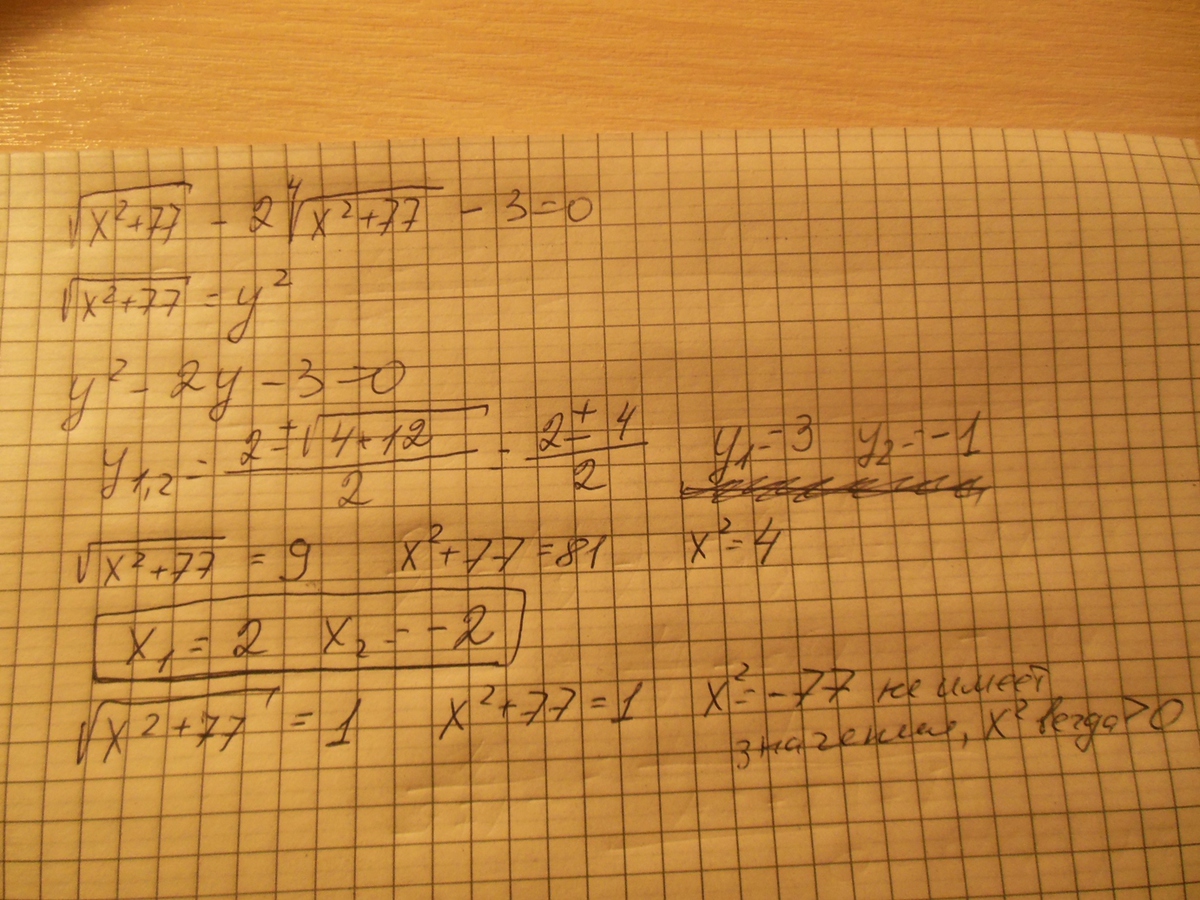 √(x²+77) - 2 ⁴√(x²+77) - 3 = 0
√(x²+77) = y²
y² - 2y - 3 = 0
y₁,₂ = (2 ± √(4+12))/2 = (2 ± 4)/2 y₁ = 3 y₂ = -1
√(x²+77) = 9 x²+77 = 81 x² = 4
x₁ = 2 x₂ = -2
√(x²+77) = 1 x²+77 = 1 x² = -77 не имеет
значения, x² вегда > 0